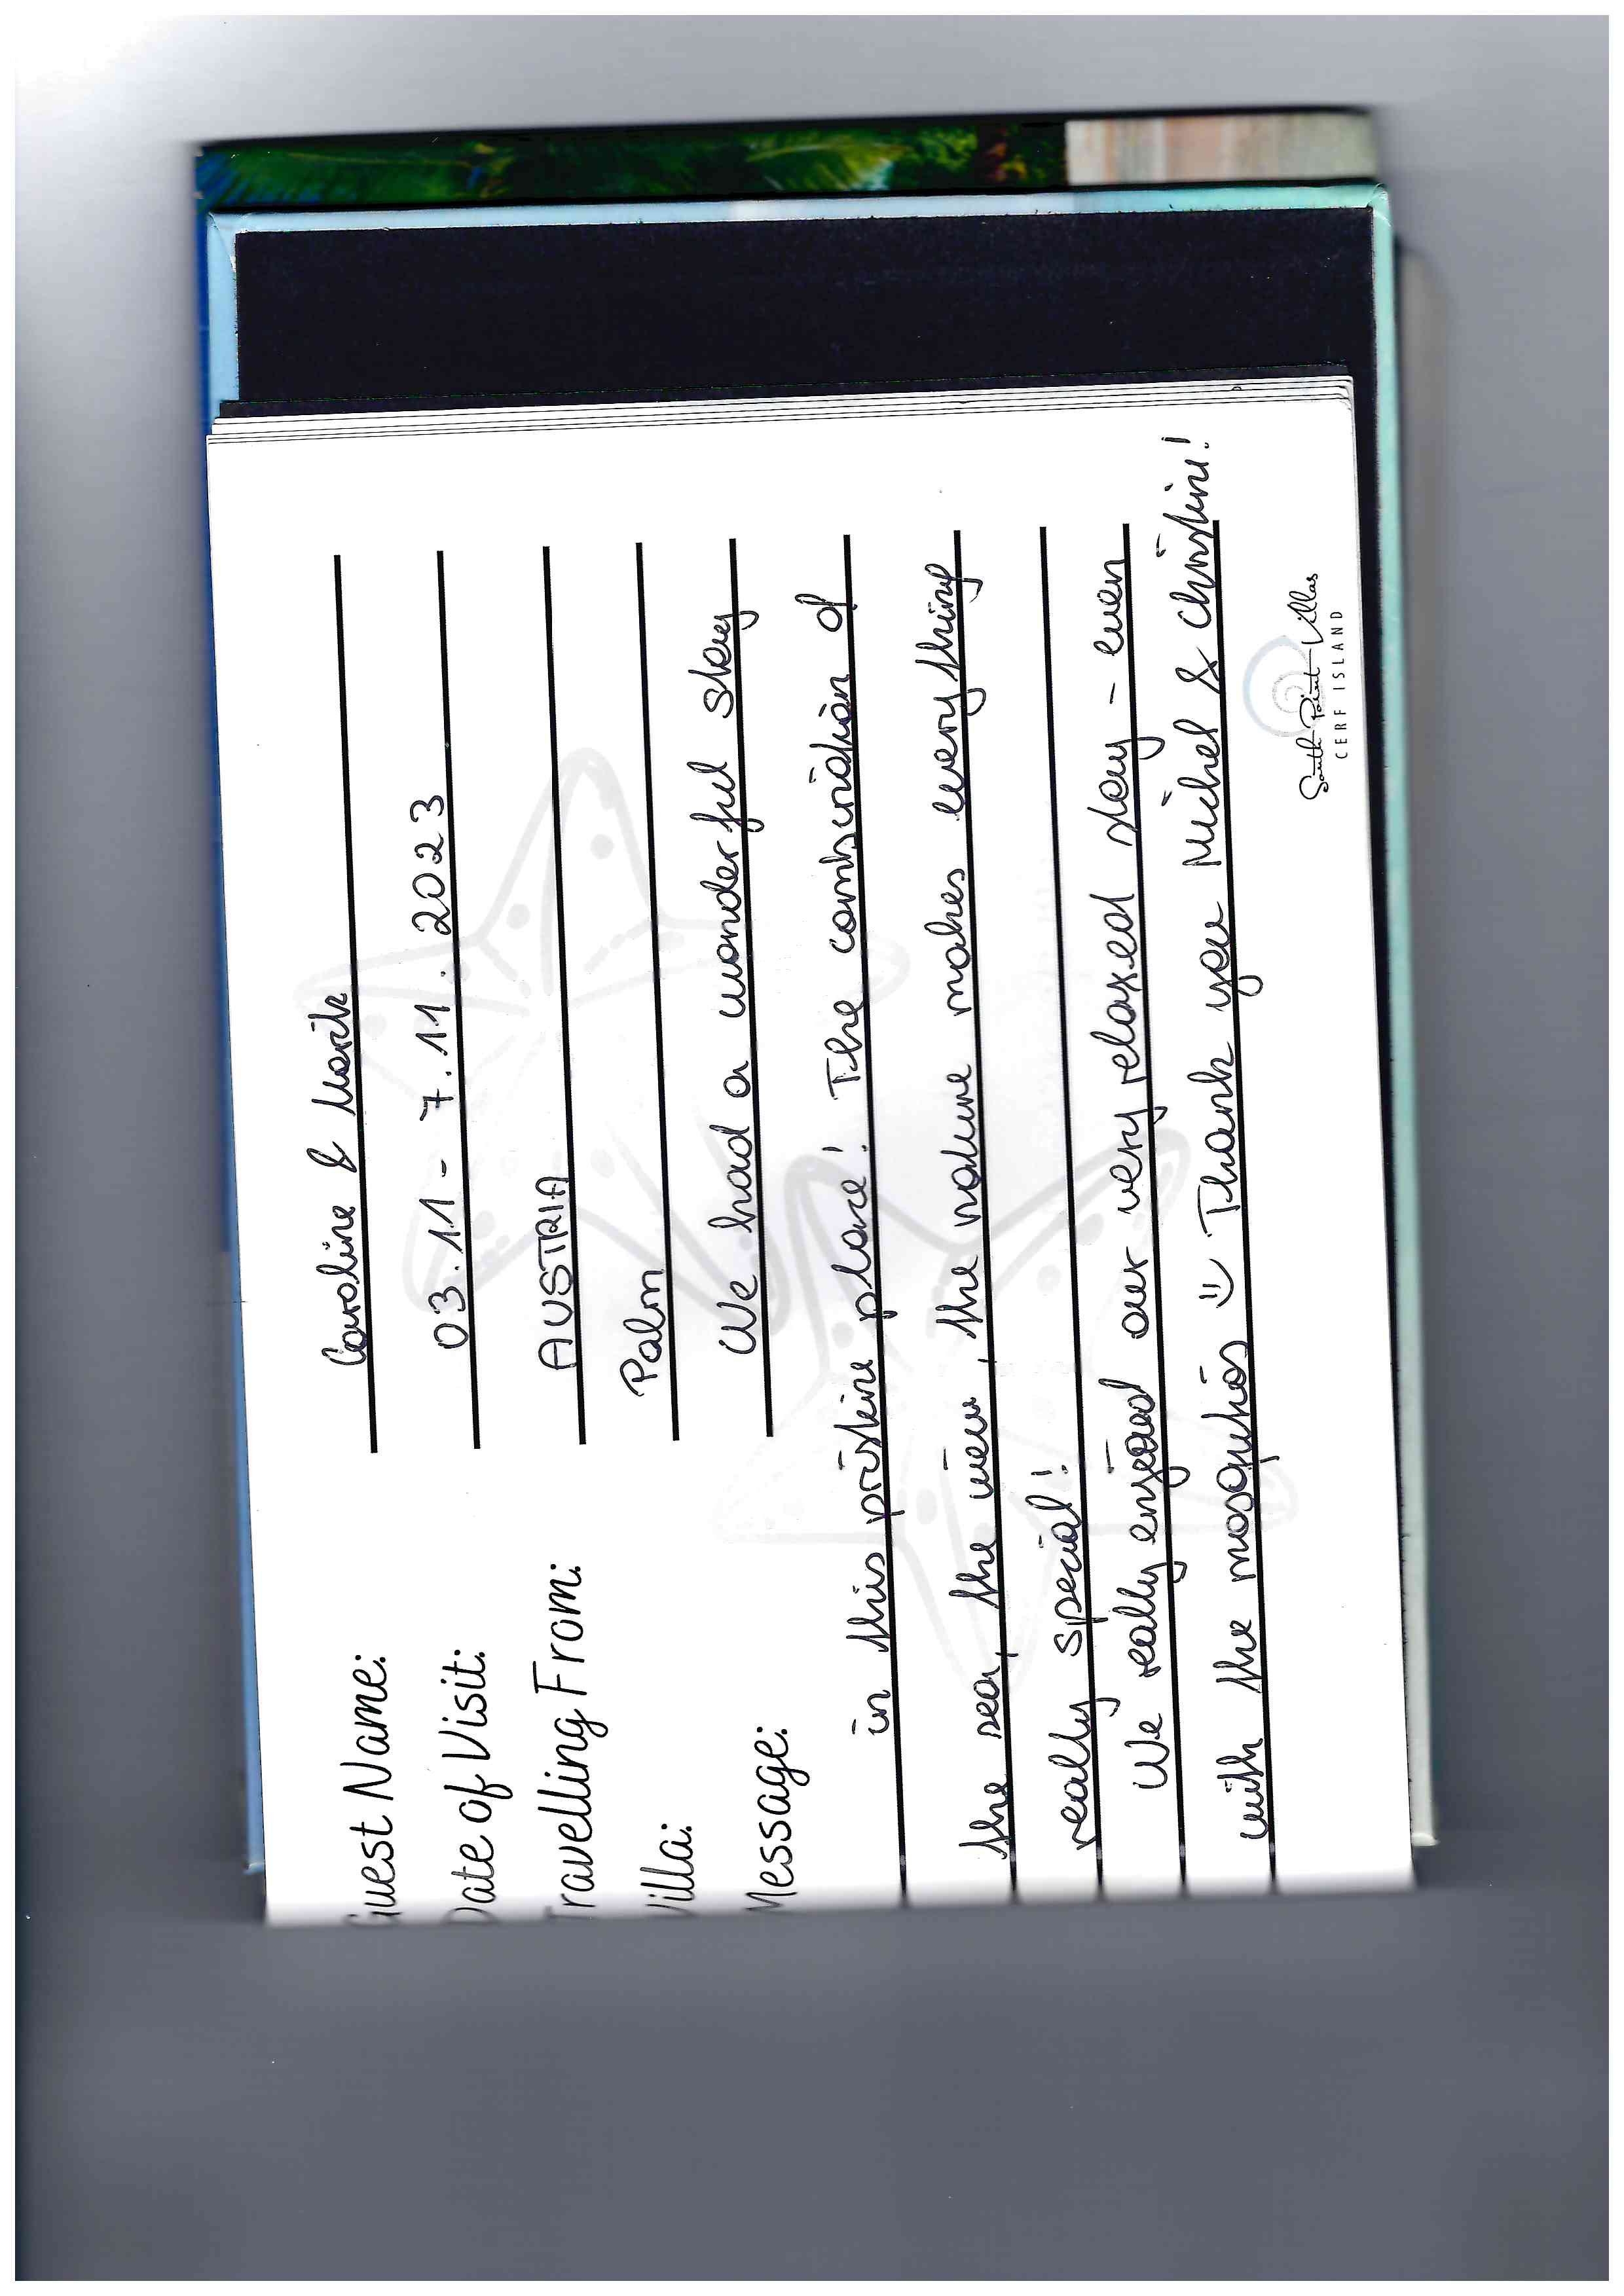 Guest Name: Caroline & Moritz
Date of Visit: 03.11 - 7.11.2023
Travelling From: AUSTRIA
Villa: Palm
Message: We had a wonderful stay
in this pristine place! The combination of
the sea, the view, the nature makes everything
really special!
We really enjoyed our very relaxed stay - even
with the mosquitos :) Thank you Michel & Christine!
South Point Villas
CERF ISLAND